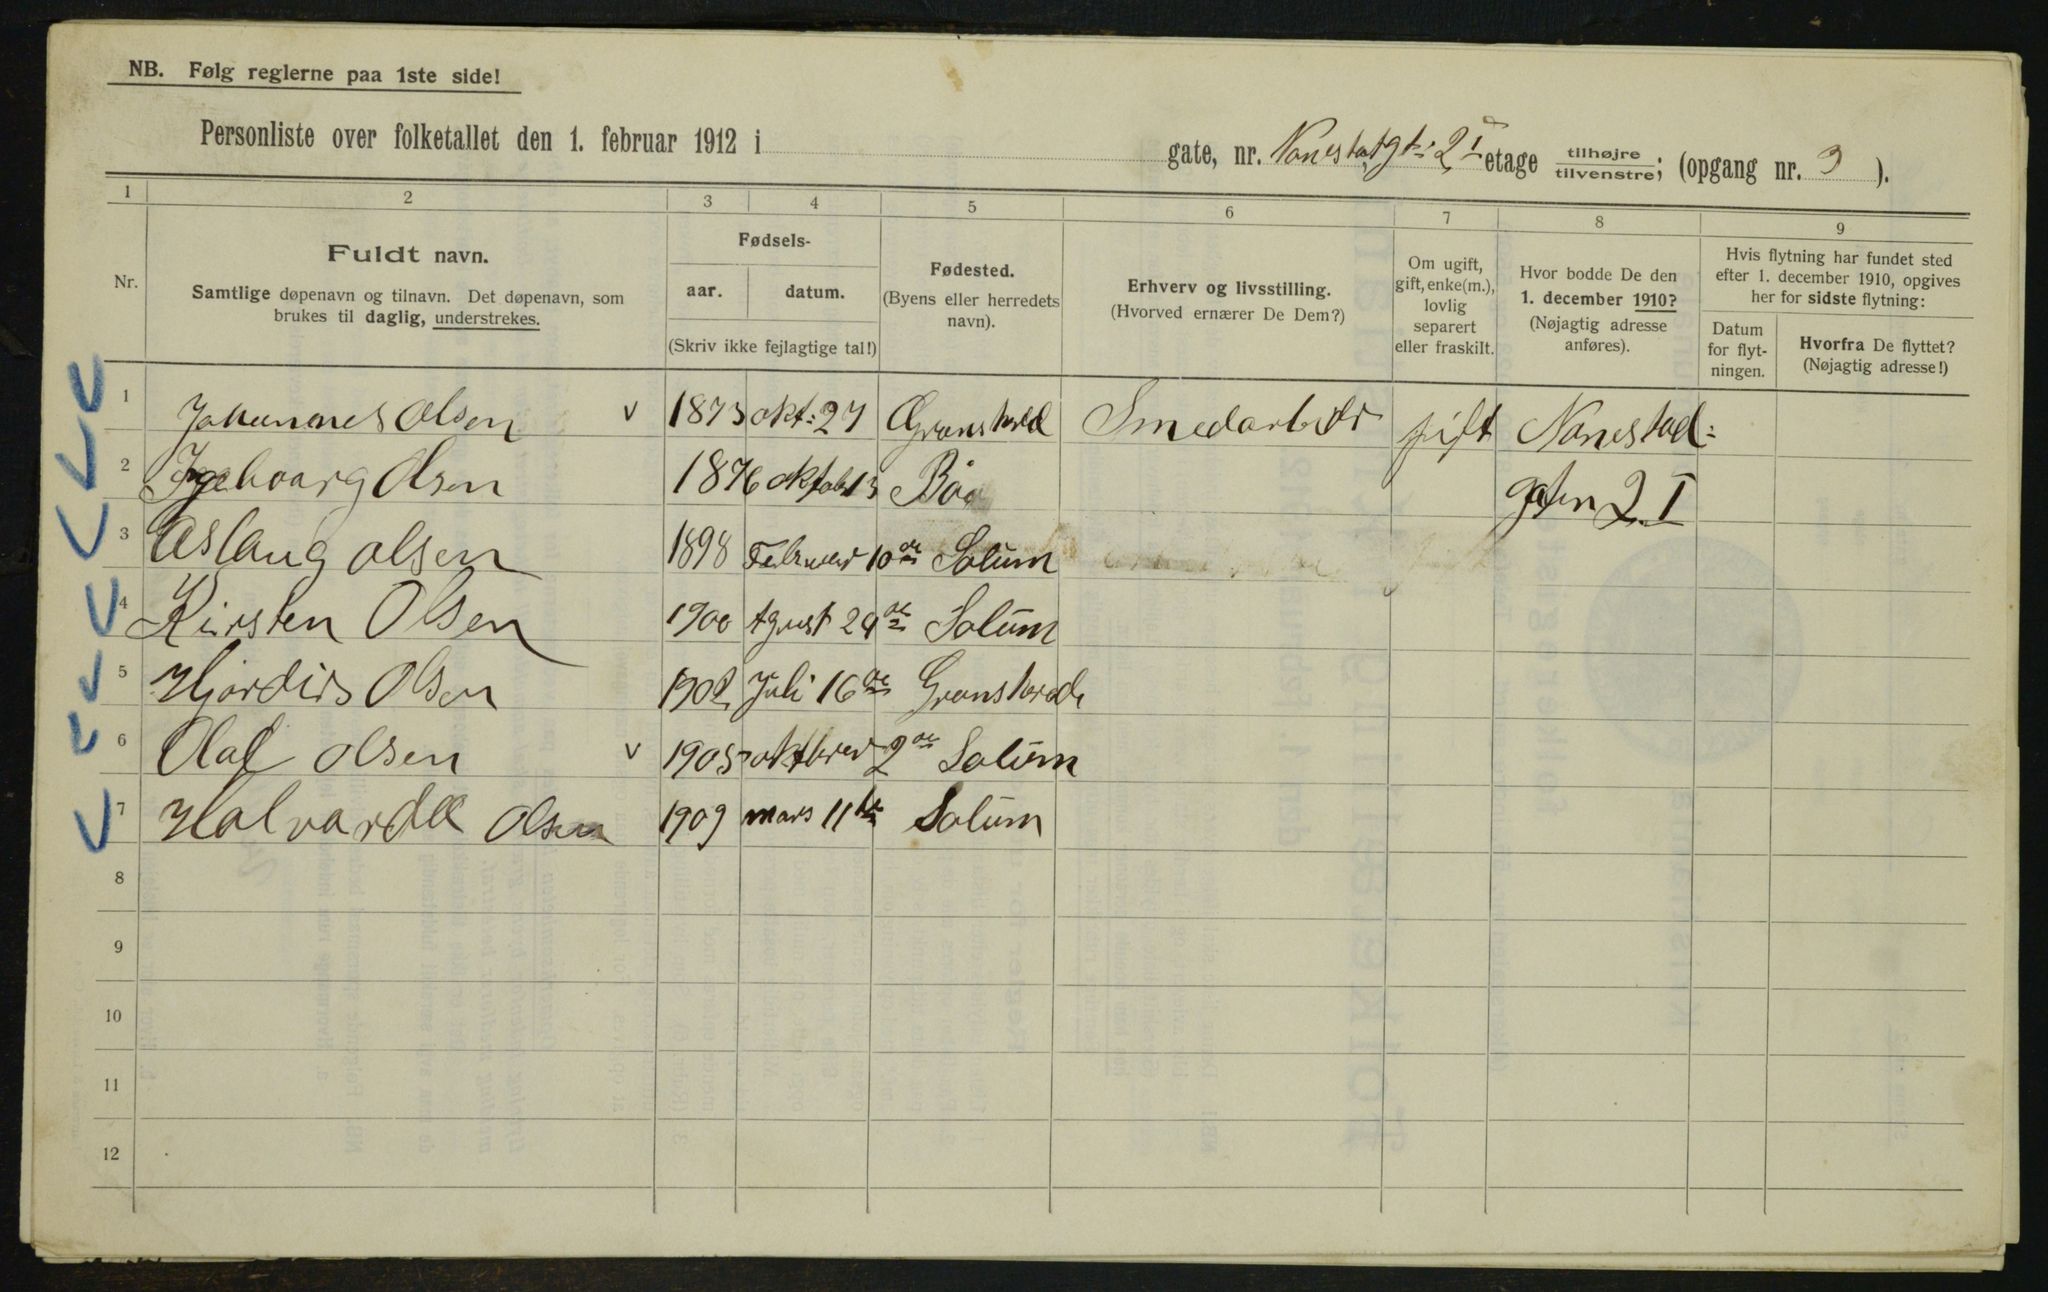 NB. Følg reglerne paa 1ste side!
Personliste over folketallet den 1. februar 1912 i gate, nr. Nonestatgt: 2 I etage tilhøjre tilvenstre; (opgang nr. 3 ).
1 2 3 4 5 6 7 8 9
Nr.
Fuldt navn.
Samtlige døpenavn og tilnavn. Det døpenavn, som
brukes til daglig, understrekes.
Fødsels-
aar. datum.
(Skriv ikke fejlagtige tal!)
Fødested.
(Byens eller herredets
navn).
Erhverv og livsstilling.
(Hvorved ernærer De Dem?)
Om ugift,
gift, enke(m.),
lovlig
separert
eller fraskilt.
Hvor bodde De den
1. december 1910?
(Nøjagtig adresse
anføres).
Hvis flytning har fundet sted
efter 1. december 1910, opgives
her for sidste flytning:
Datum
for flyt-
ningen.
Hvorfra De flyttet?
(Nøjagtig adresse!)
1 Johannes Olsen v 1873 okt: 27 Smedarbeder gift Nonestad:
2 Ingeboarg Olsen 1876 oktob 13 Bø gaten 2. I
3 Aslaug olsen 1898 Februar 10de Solum
4 Kirsten Olsen 1900 Agust 29de Solum
5 Hjordis Olsen 1902 Juli 16de Granshered
6 Olaf olsen v 1905 oktbrer 2de Solum
7 Halvard Olsen 1909 mars 11te Solum
8
9
10
11
12